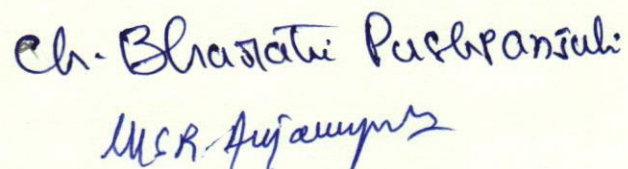 Ch. Bharathi Pushpanjali
M S R. Anjaneyulu